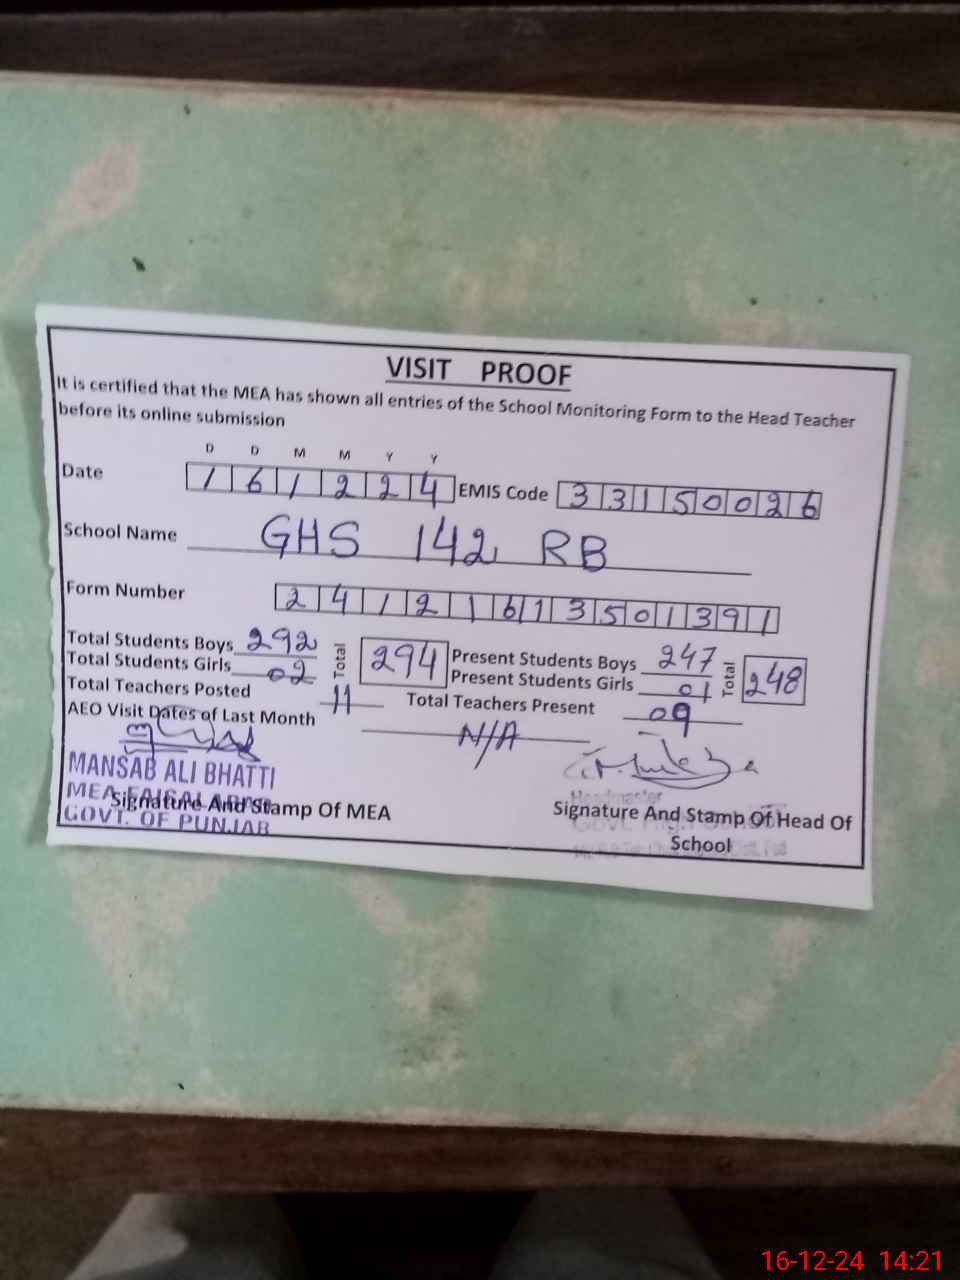 VISIT PROOF
It is certified that the MEA has shown all entries of the School Monitoring Form to the Head Teacher
before its online submission
D D M M Y Y
Date 1 6 1 2 2 4 EMIS Code 3 3 1 5 0 0 2 6
School Name GHS 142 RB
Form Number 2 4 1 2 1 6 1 3 5 0 1 3 9 1
Total Students Boys 292 Total 294 Present Students Boys 247 Total 248
Total Students Girls 02 Present Students Girls 01
Total Teachers Posted 11 Total Teachers Present 09
AEO Visit Dates of Last Month N/A
MANSAB ALI BHATTI
MEA FAISALABAD
GOVT. OF PUNJAB
Signature And Stamp Of MEA
Headmaster
Signature And Stamp Of Head Of
School
16-12-24 14:21